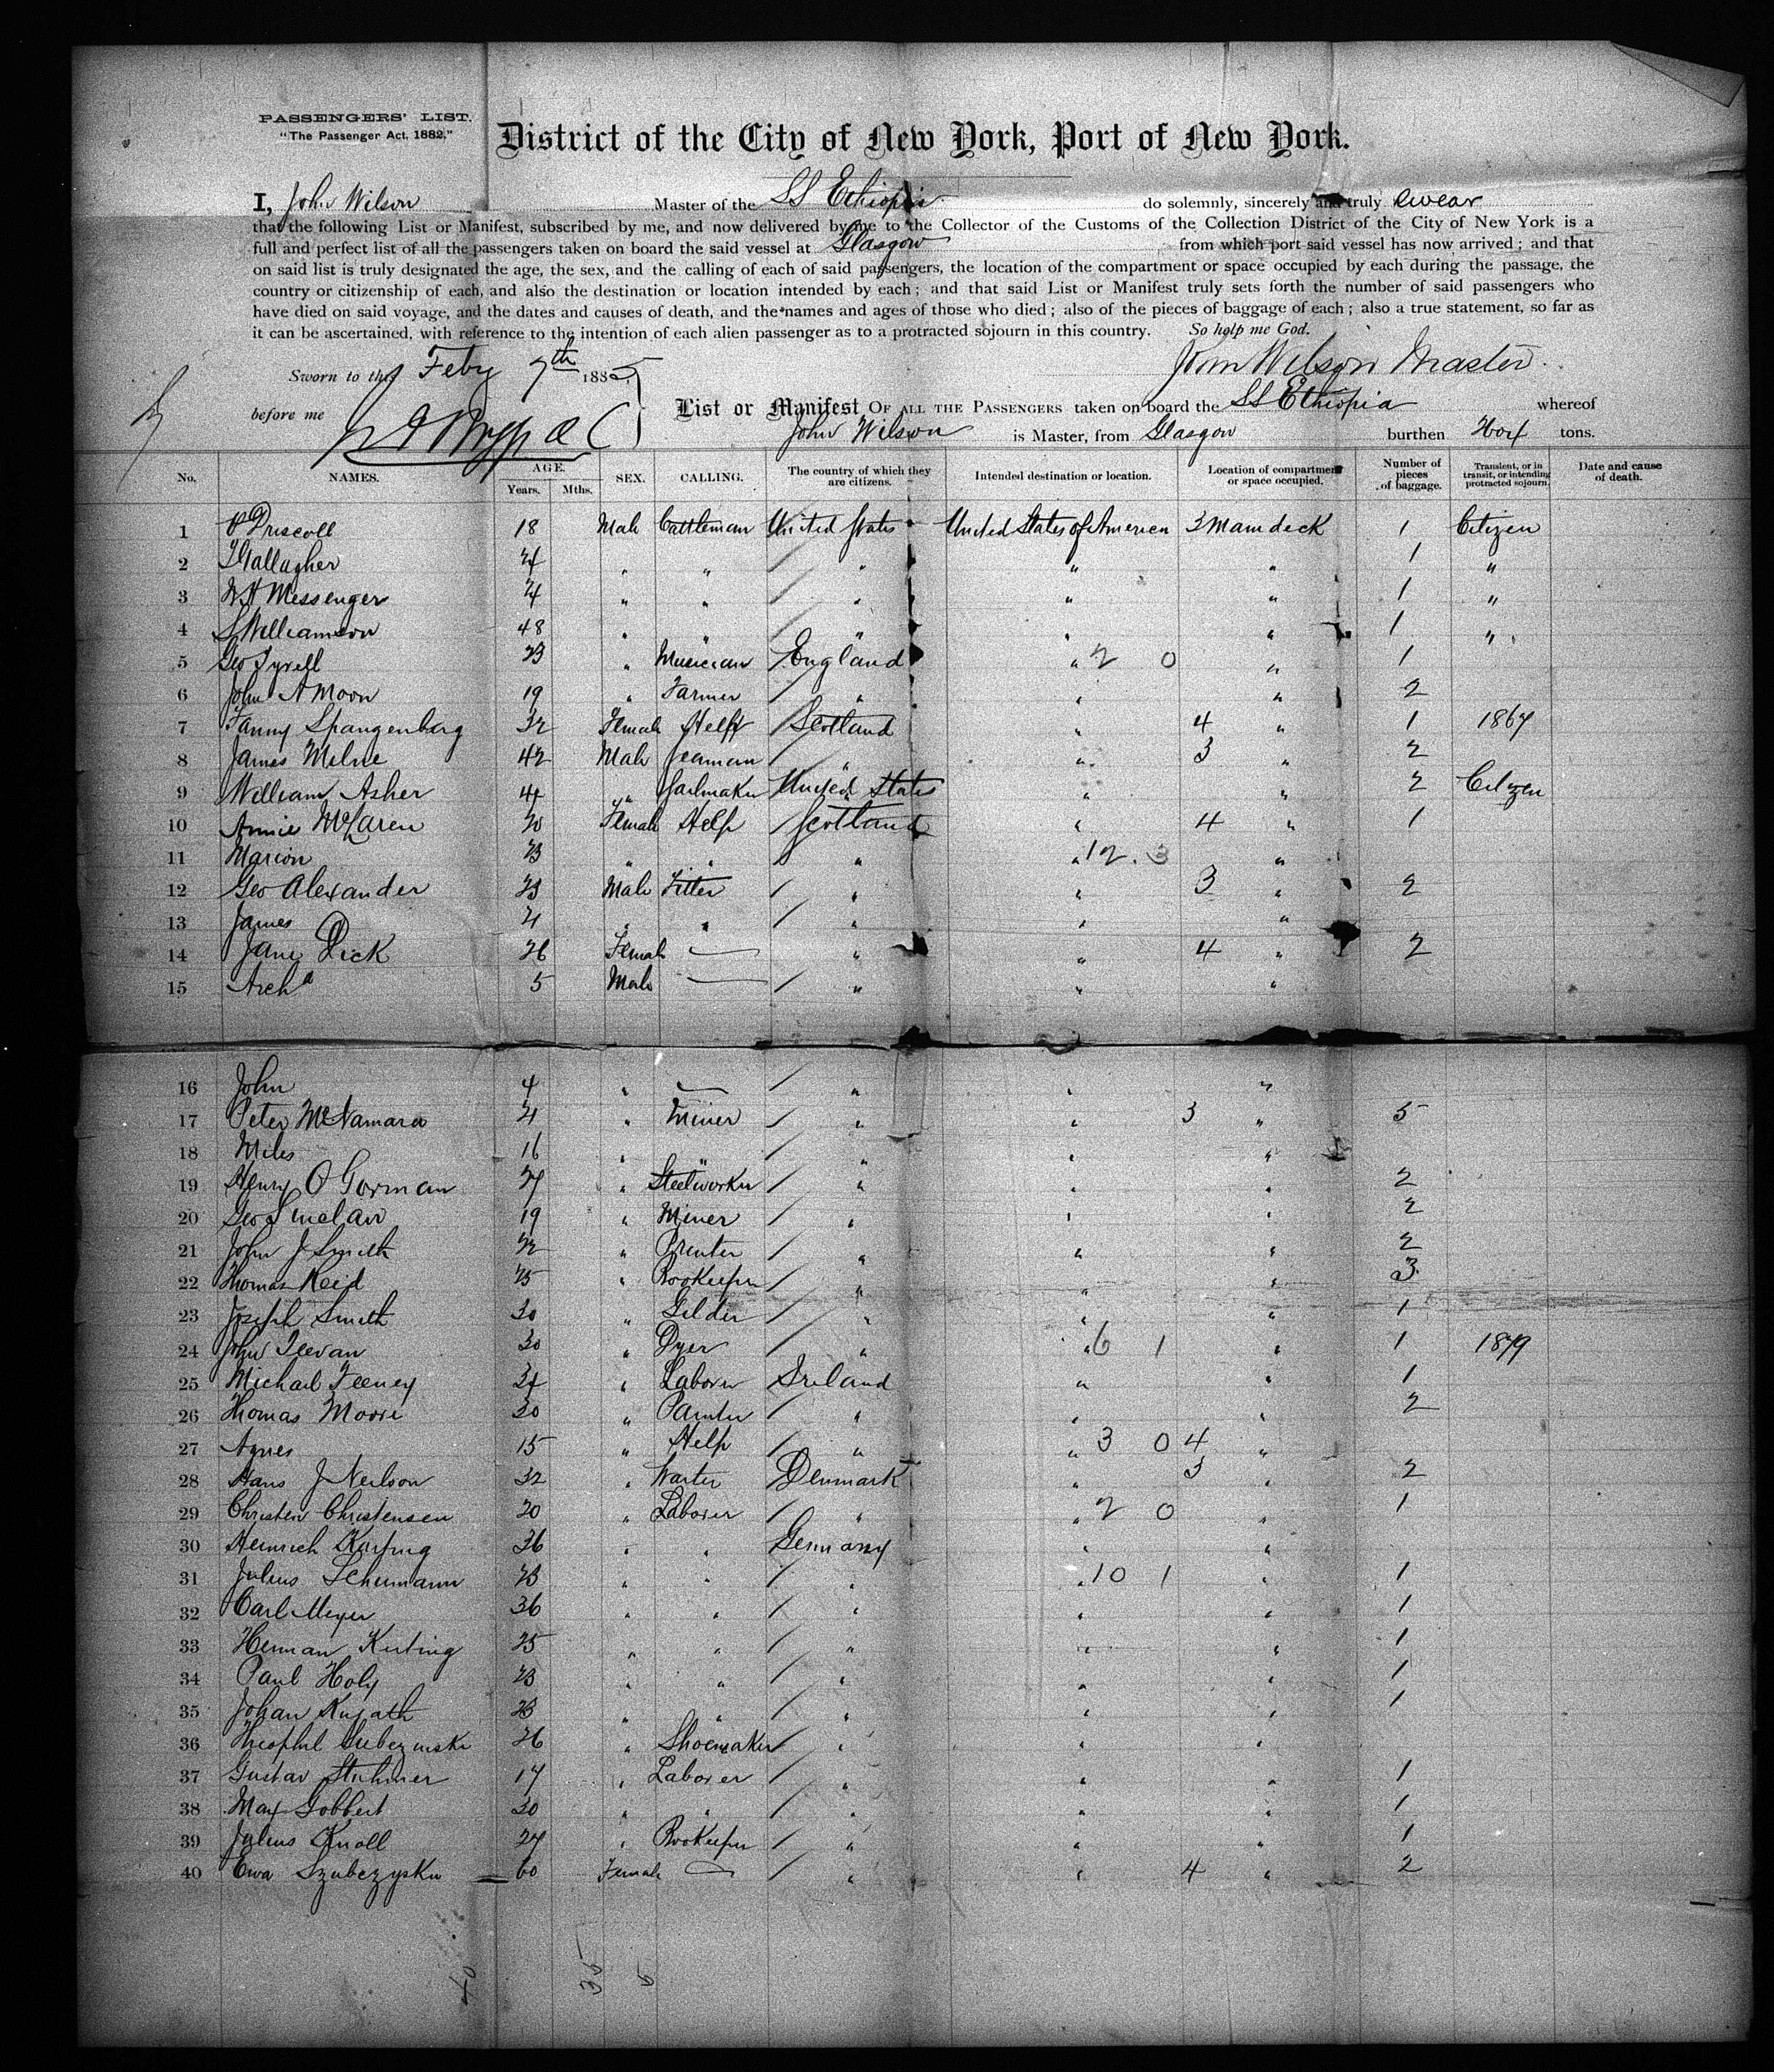 PASSENGERS' LIST.
"The Passenger Act, 1882,"
District of the City of New York, Port of New York.
I, John Wilson Master of the SS Ethiopia do solemnly, sincerely and truly swear
that the following List or Manifest, subscribed by me, and now delivered by me to the Collector of the Customs of the Collection District of the City of New York is a
full and perfect list of all the passengers taken on board the said vessel at Glasgow from which port said vessel has now arrived; and that
on said list is truly designated the age, the sex, and the calling of each of said passengers, the location of the compartment or space occupied by each during the passage, the
country or citizenship of each, and also the destination or location intended by each; and that said List or Manifest truly sets forth the number of said passengers who
have died on said voyage, and the dates and causes of death, and the names and ages of those who died; also of the pieces of baggage of each; also a true statement, so far as
it can be ascertained, with reference to the intention of each alien passenger as to a protracted sojourn in this country. So help me God.
Sworn to this Feby 7th 1885
John Wilson Master.
before me
List or Manifest OF ALL THE PASSENGERS taken on board the SS Ethiopia whereof
John Wilson is Master, from Glasgow burthen tons.
No. NAMES. AGE. Years. Mths. SEX. CALLING. The country of which they are citizens. Intended destination or location. Location of compartment or space occupied. Number of pieces of baggage. Transient, or in transit, or intending protracted sojourn. Date and cause of death.
1 P Driscoll 18 Male Cattleman United States United States of America 3 Main deck 1 Citizen
2 J Gallagher 24 " " / " " " 1 "
3 W H Messenger 24 " " / " " " 1 "
4 S Williamson 48 " " / " " " 1 "
5 Geo Tyrell 23 " Musician / England " 2 0 " 1
6 John A Moon 19 " Farmer / " " " 2
7 Fanny Spangenberg 32 Female Help / Scotland " 4 " 1 1867
8 James Milne 42 Male Seaman / " " 3 " 2
9 William Asher 44 " Sailmaker United States " " 2 Citizen
10 Annie McLaren 20 Female Help / Scotland " 4 " 1
11 Marion 23 " " / " " 12 3 "
12 Geo Alexander 23 Male Fitter / " " 3 " 2
13 James 21 " " / " " "
14 Jane Dick 26 Female — " " 4 " 2
15 Archd 5 Male — / " " "
16 John 4 " — / " " "
17 Peter McNamara 21 " Miner / " " 3 " 5
18 Miles 16 " " / " " "
19 Henry O Gorman 27 " Steelworker / " " " 2
20 Geo Sinclair 19 " Miner / " " " 2
21 John J Smith 22 " Printer / " " " 2
22 Thomas Reid 25 " Bookeeper / " " " 3
23 Joseph Smith 30 " Gilder / " " " 1
24 John Teevan 30 " Dyer / " " 6 1 " 1 1879
25 Michael Feeney 34 " Laborer Ireland " " 1
26 Thomas Moore 30 " Painter / " " " 2
27 Agnes 15 " Help / " " 3 0 4 "
28 Hans J Neilson 32 " Waiter Denmark " 3 " 2
29 Christen Christensen 20 " Laborer / " " 2 0 " 1
30 Heinrich 36 " " Germany " "
31 Julius Schumann 23 " " / " " 10 1 " 1
32 Carl Meyer 36 " " / " " " 1
33 Herman Kerting 25 " " / " " " 1
34 Paul Holy 23 " " / " " " 1
35 Johan Kujath 23 " " / " " " 1
36 Theophil 26 " Shoemaker / " " "
37 Gustav Stuhmer 17 " Laborer / " " " 1
38 Max Gobbert 30 " " / " " " 1
39 Julius Knoll 27 " Bookeeper / " " " 1
40 Ewa Szubczysku 60 Female — / " " 4 " 2
40 35 5